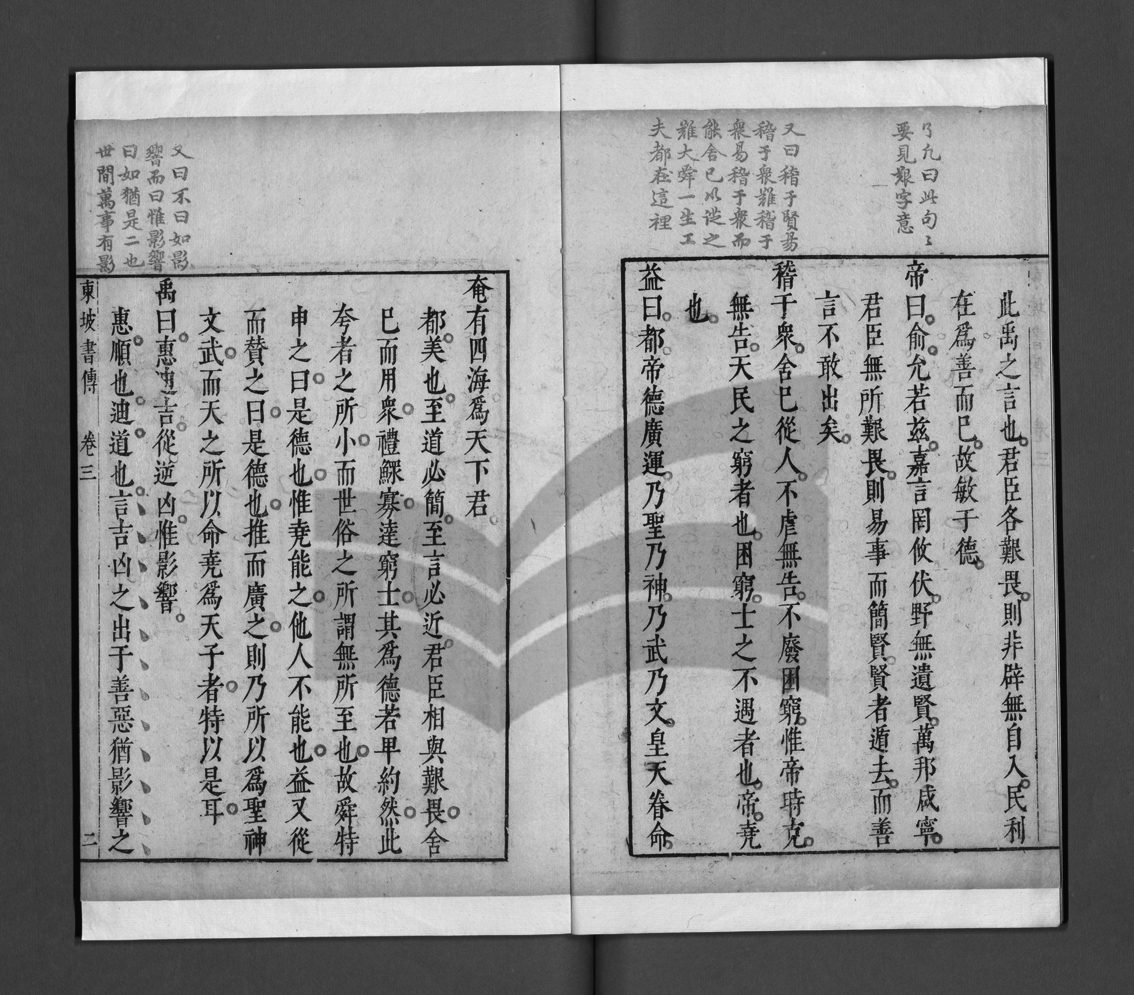 了凡曰此句〻
要見艱字意
又曰稽于賢易
稽于衆難稽于
衆易稽于衆而
能舍已以從之
難大舜一生工
夫都在這裡
此禹之言也君臣各艱畏則非辟無自入民利
在爲善而已故敏于德
帝曰俞允若兹嘉言罔攸伏野無遺賢萬邦咸寧
君臣無所艱畏則易事而簡賢賢者遁去而善
言不敢出矣
稽于衆舍已從人不虐無告不廢困窮惟帝時克
無告天民之窮者也困窮士之不遇者也帝堯
也
益曰都帝德廣運乃聖乃神乃武乃文皇天眷命
奄有四海爲天下君
都美也至道必簡至言必近君臣相與艱畏舍
已而用衆禮鰥寡達窮士其爲德若卑約然此
夸者之所小而世俗之所謂無所至也故舜特
申之曰是德也惟堯能之他人不能也益又從
而賛之曰是德也推而廣之則乃所以爲聖神
文武而天之所以命堯爲天子者特以是耳
禹曰惠迪吉從逆凶惟影響
惠順也迪道也言吉凶之出于善惡猶影響之
東坡書傳 卷三 二
又曰不曰如影
響而曰惟影響
曰如猶是二也
世間萬事有影